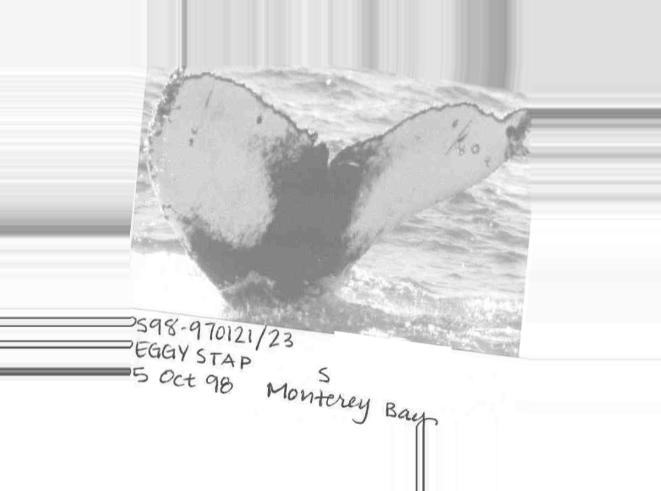 S98-970121/23
EGGY STAP S
5 Oct 98 Monterey Bay